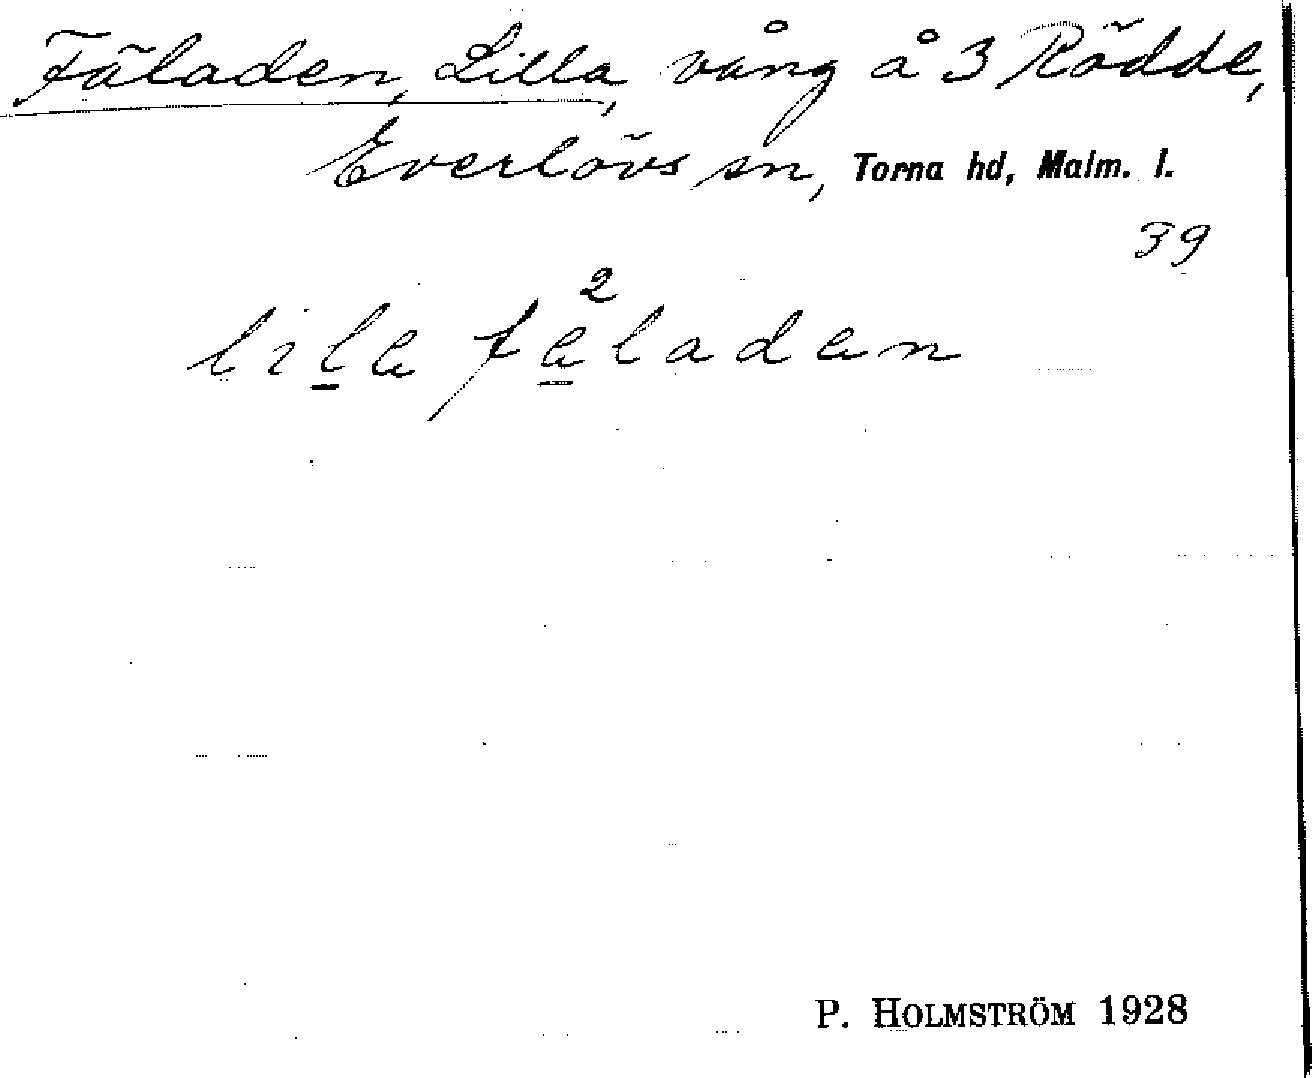 Fäladen, Lilla, vång å 3 Rödde,
Everlövs sn, Torna hd, Malm. l.
39
2
lila fäladan
P. HOLMSTRÖM 1928